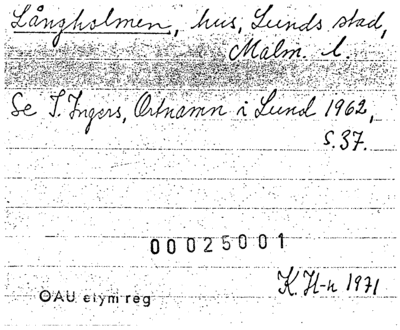 Långholmen, hus, Lunds stad,
Malm. l.
Se I. Ingers, Ortnamn i Lund 1962,
s. 37.
00025001
K H-n 1971
OAU etym reg